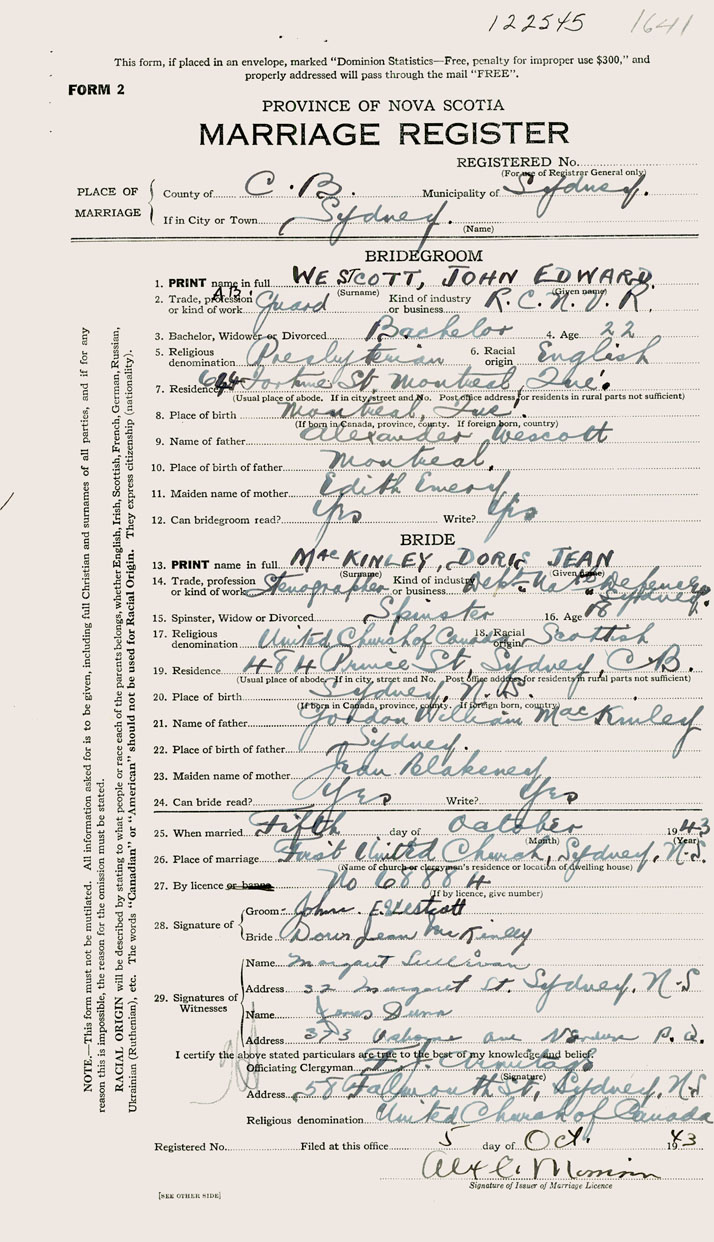 122545 1641
This form, if placed in an envelope, marked "Dominion Statistics—Free, penalty for improper use $300," and
properly addressed will pass through the mail "FREE".
FORM 2
PROVINCE OF NOVA SCOTIA
MARRIAGE REGISTER
REGISTERED No.
(For use of Registrar General only)
PLACE OF MARRIAGE
County of C.B. Municipality of Sydney.
If in City or Town Sydney.
(Name)
BRIDEGROOM
1. PRINT name in full WESTCOTT, JOHN EDWARD.
(Surname) (Given name)
2. Trade, profession or kind of work A.B. Guard Kind of industry or business R.C.N.V.R.
3. Bachelor, Widower or Divorced Bachelor 4. Age 22
5. Religious denomination Presbyterian 6. Racial origin English
7. Residence St, Montreal, Que.
(Usual place of abode. If in city, street and No. Post office address for residents in rural parts not sufficient)
8. Place of birth Montreal, Que.
(If born in Canada, province, county. If foreign born, country)
9. Name of father Alexander Wescott
10. Place of birth of father Montreal.
11. Maiden name of mother Edith Emery
12. Can bridegroom read? Yes Write? Yes
BRIDE
13. PRINT name in full MacKINLEY, DORIS JEAN
(Surname) (Given name)
14. Trade, profession or kind of work Stenographer Kind of industry or business Dept. Nat. Defence, Sydney.
15. Spinster, Widow or Divorced Spinster 16. Age 18
17. Religious denomination United Church of Canada 18. Racial origin Scottish
19. Residence 484 Prince St, Sydney, C.B.
(Usual place of abode. If in city, street and No. Post office address for residents in rural parts not sufficient)
20. Place of birth Sydney, N.S.
(If born in Canada, province, county. If foreign born, country)
21. Name of father Gordon William MacKinley
22. Place of birth of father Sydney.
23. Maiden name of mother Jean Blakeney
24. Can bride read? Yes Write? Yes
25. When married Fifth day of October 1943
(Month) (Year)
26. Place of marriage First United Church, Sydney, N.S.
(Name of church or clergyman's residence or location of dwelling house)
27. By licence or banns No 68884
(If by licence, give number)
28. Signature of
Groom John E. Westcott
Bride Doris Jean McKinley
29. Signatures of Witnesses
Name Margaret Sullivan
Address 32 Margaret St. Sydney, N.S
Name Dunn
Address 373 Osborne ave Verdun P.Q.
I certify the above stated particulars are true to the best of my knowledge and belief.
Officiating Clergyman Armitage
(Signature)
Address 58 Falmouth St, Sydney, N.S
Religious denomination United Church of Canada
Registered No. Filed at this office 5 day of Oct. 1943
Alex C.
Signature of Issuer of Marriage Licence
[SEE OTHER SIDE]
NOTE.—This form must not be mutilated. All information asked for is to be given, including full Christian and surnames of all parties, and if for any
reason this is impossible, the reason for the omission must be stated.
RACIAL ORIGIN will be described by stating to what people or race each of the parents belongs, whether English, Irish, Scottish, French, German, Russian,
Ukrainian (Ruthenian), etc. The words "Canadian" or "American" should not be used for Racial Origin. They express citizenship (nationality).